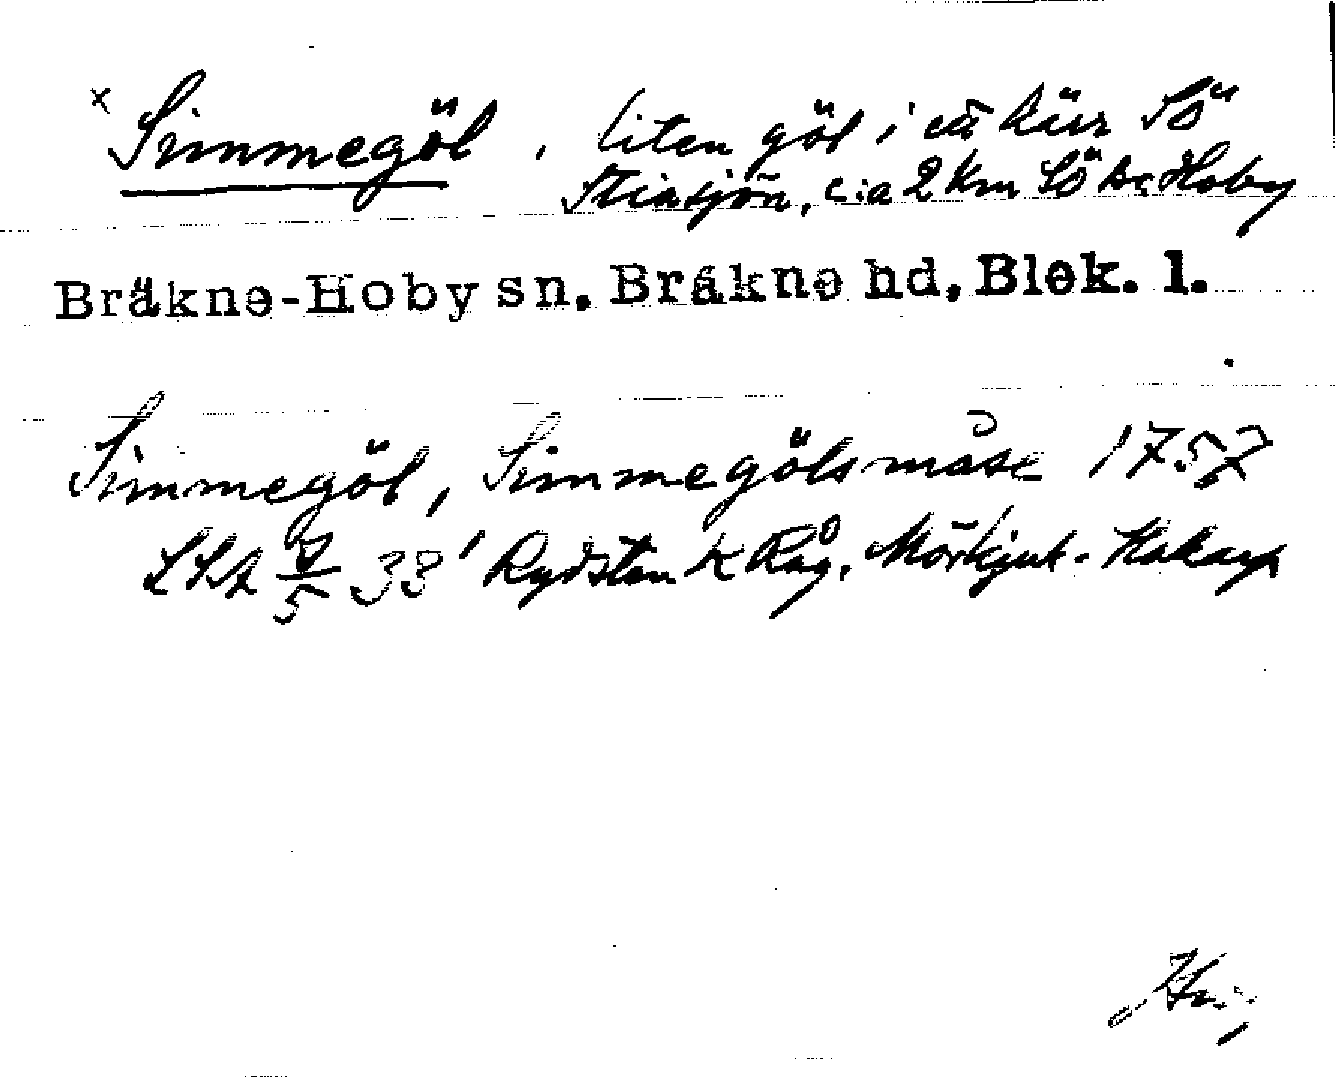 x Simmegöl, liten göl i ett kärr Sö
Stensjön, c:a 2 km Sö Br Hoby
Bräkne-Hoby sn. Bräkne hd, Blek. l.
Simmegöl, Simmegölsmåse 1757
LSA 7/5 33' Rydsten K Råg. Mörkjuk-Hakarp